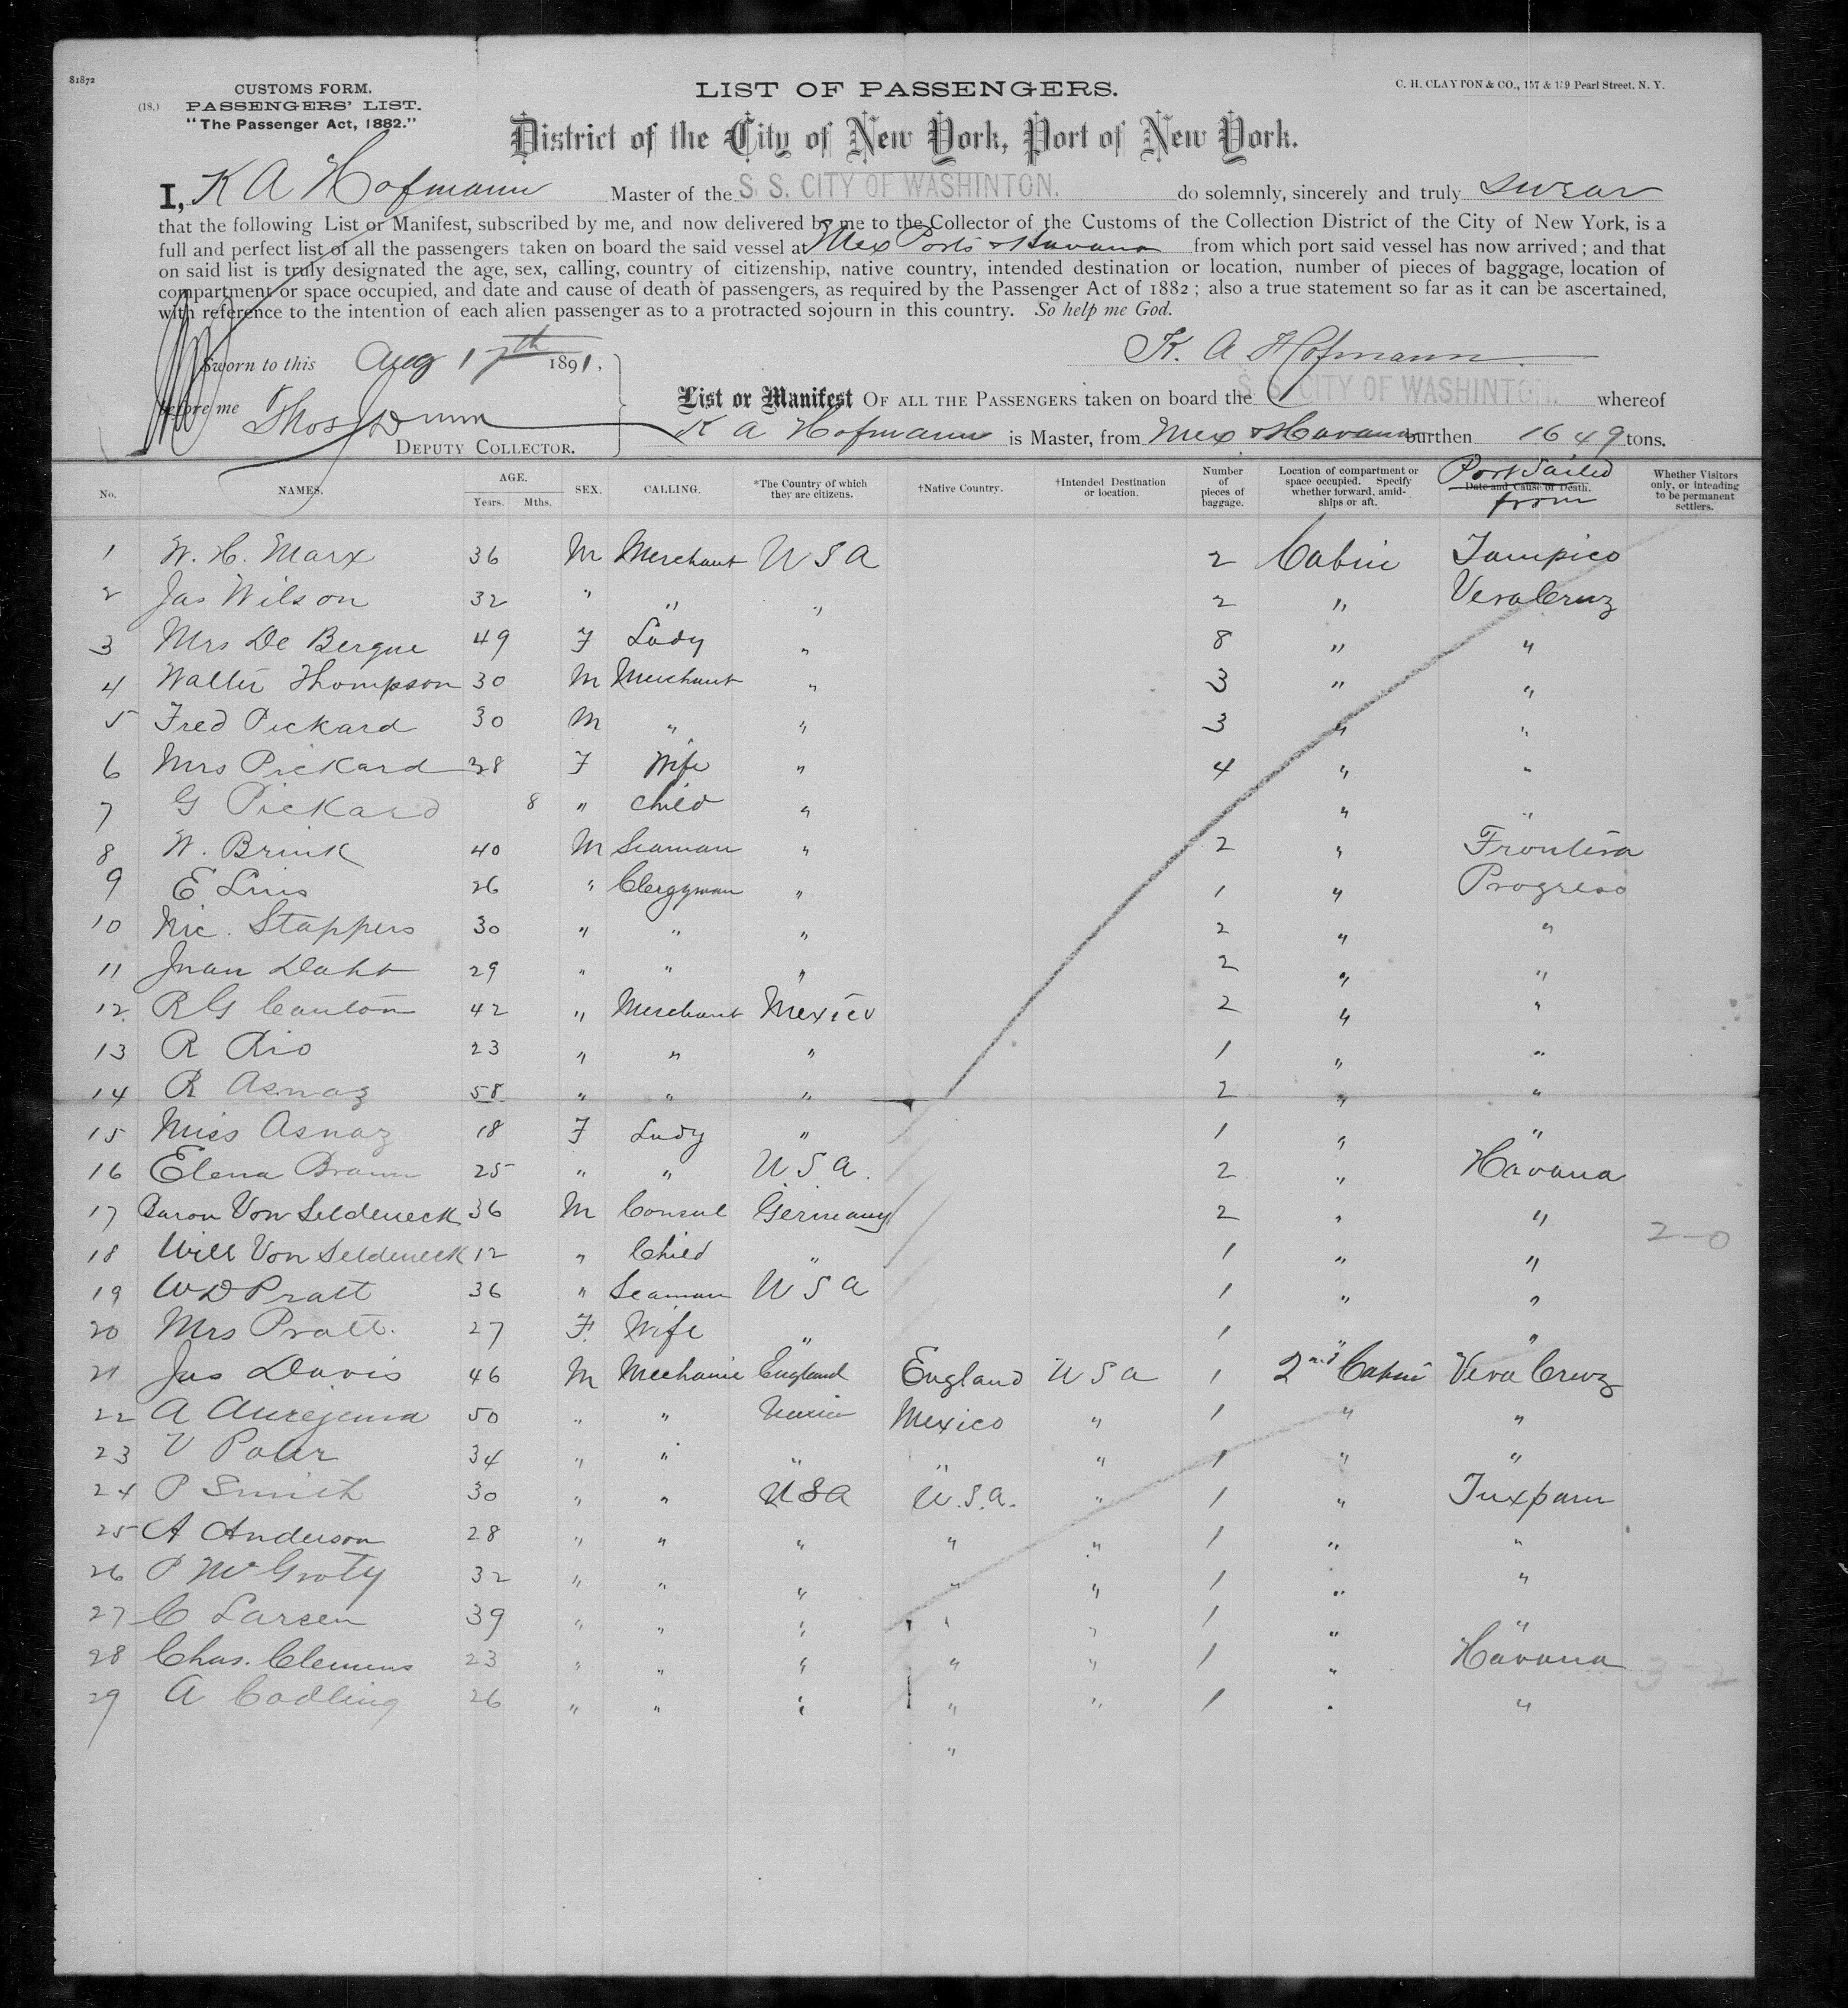 81872
CUSTOMS FORM.
(18.) PASSENGERS' LIST.
"The Passenger Act, 1882."
LIST OF PASSENGERS.
C. H. CLAYTON & CO., 157 & 159 Pearl Street, N. Y.
District of the City of New York, Port of New York.
I, K A Hofmann Master of the S. S. CITY OF WASHINTON. do solemnly, sincerely and truly swear
that the following List or Manifest, subscribed by me, and now delivered by me to the Collector of the Customs of the Collection District of the City of New York, is a
full and perfect list of all the passengers taken on board the said vessel at Mex Ports & Havana from which port said vessel has now arrived; and that
on said list is truly designated the age, sex, calling, country of citizenship, native country, intended destination or location, number of pieces of baggage, location of
compartment or space occupied, and date and cause of death of passengers, as required by the Passenger Act of 1882; also a true statement so far as it can be ascertained,
with reference to the intention of each alien passenger as to a protracted sojourn in this country. So help me God.
Sworn to this Aug 17th 1891.
K. A Hofmann
before me Thos Dunn
DEPUTY COLLECTOR.
List or Manifest OF ALL THE PASSENGERS taken on board the S. S. CITY OF WASHINTON. whereof
K A Hofmann is Master, from Mex & Havana burthen 1649 tons.
No. NAMES. AGE. Years. Mths. SEX. CALLING. *The Country of which they are citizens. †Native Country. †Intended Destination or location. Number of pieces of baggage. Location of compartment or space occupied. Specify whether forward, amidships or aft. Date and Cause of Death. Port Sailed from Whether Visitors only, or intending to be permanent settlers.
1 W. H. Marx 36 M Merchant U S A 2 Cabin Tampico
2 Jas Wilson 32 " " " 2 " Vera Cruz
3 Mrs De Bergue 49 F Lady " 8 " "
4 Walter Thompson 30 M Merchant " 3 " "
5 Fred Pickard 30 M " " 3 " "
6 Mrs Pickard 28 F Wife " 4 " "
7 G Pickard 8 " Child " " "
8 W. Brink 40 M Seaman " 2 " Frontera
9 E 26 " Clergyman " 1 " Progreso
10 Nic. Stappers 30 " " " 2 " "
11 Juan Daht 29 " " " 2 " "
12 R G Canton 42 " Merchant Mexico 2 " "
13 R Rio 23 " " " 1 " "
14 R Asnaz 58 " " " 2 " "
15 Miss Asnaz 18 F Lady " 1 " "
16 Elena Braun 25 " " U S A. 2 " Havana
17 Baron Von Seldeneck 36 M Consul Germany 2 " "
2-0
18 Will Von Seldeneck 12 " Child " 1 " "
19 W D Pratt 36 " Seaman U S A 1 " "
20 Mrs Pratt. 27 F. Wife " 1 " "
21 Jas Davis 46 M Mechanic England England U S A 1 2nd Cabin Vera Cruz
22 A 50 " " Mexico Mexico " 1 " "
23 V 34 " " " " " 1 " "
24 P Smith 30 " " U S A U.S.A. " 1 " Tuxpam
25 A Anderson 28 " " " " " 1 " "
26 P McGroty 32 " " " " " 1 " "
27 C Larsen 39 " " " " " 1 " "
28 Chas. Clemens 23 " " " " " 1 " Havana
3-2
29 A Codling 26 " " " " " 1 " "
"